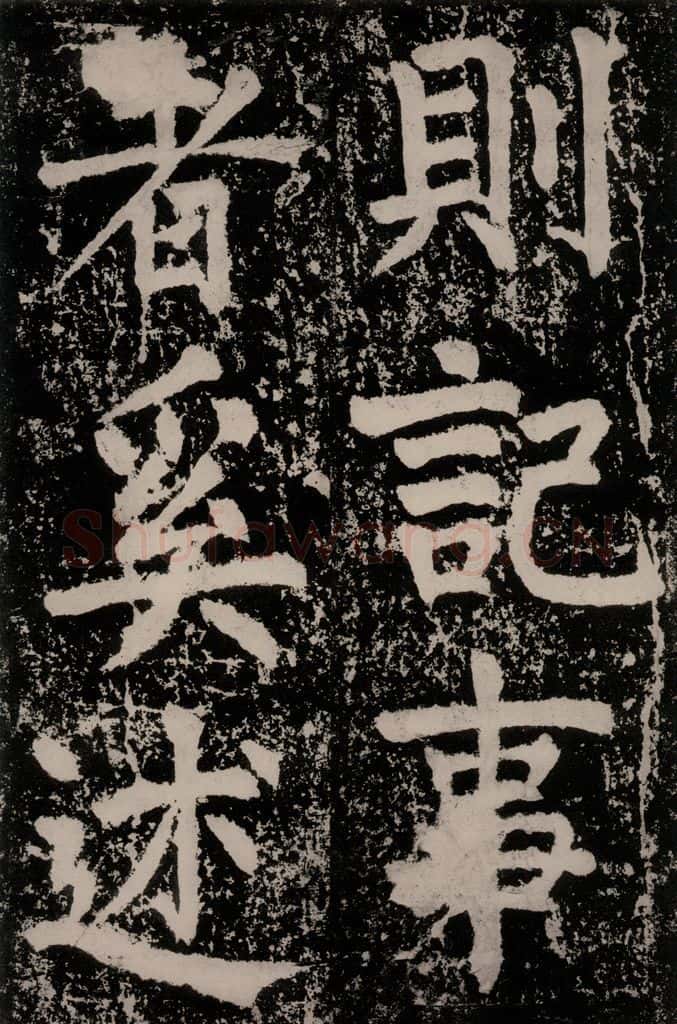 則記事
者奚述
Shufawang.CN